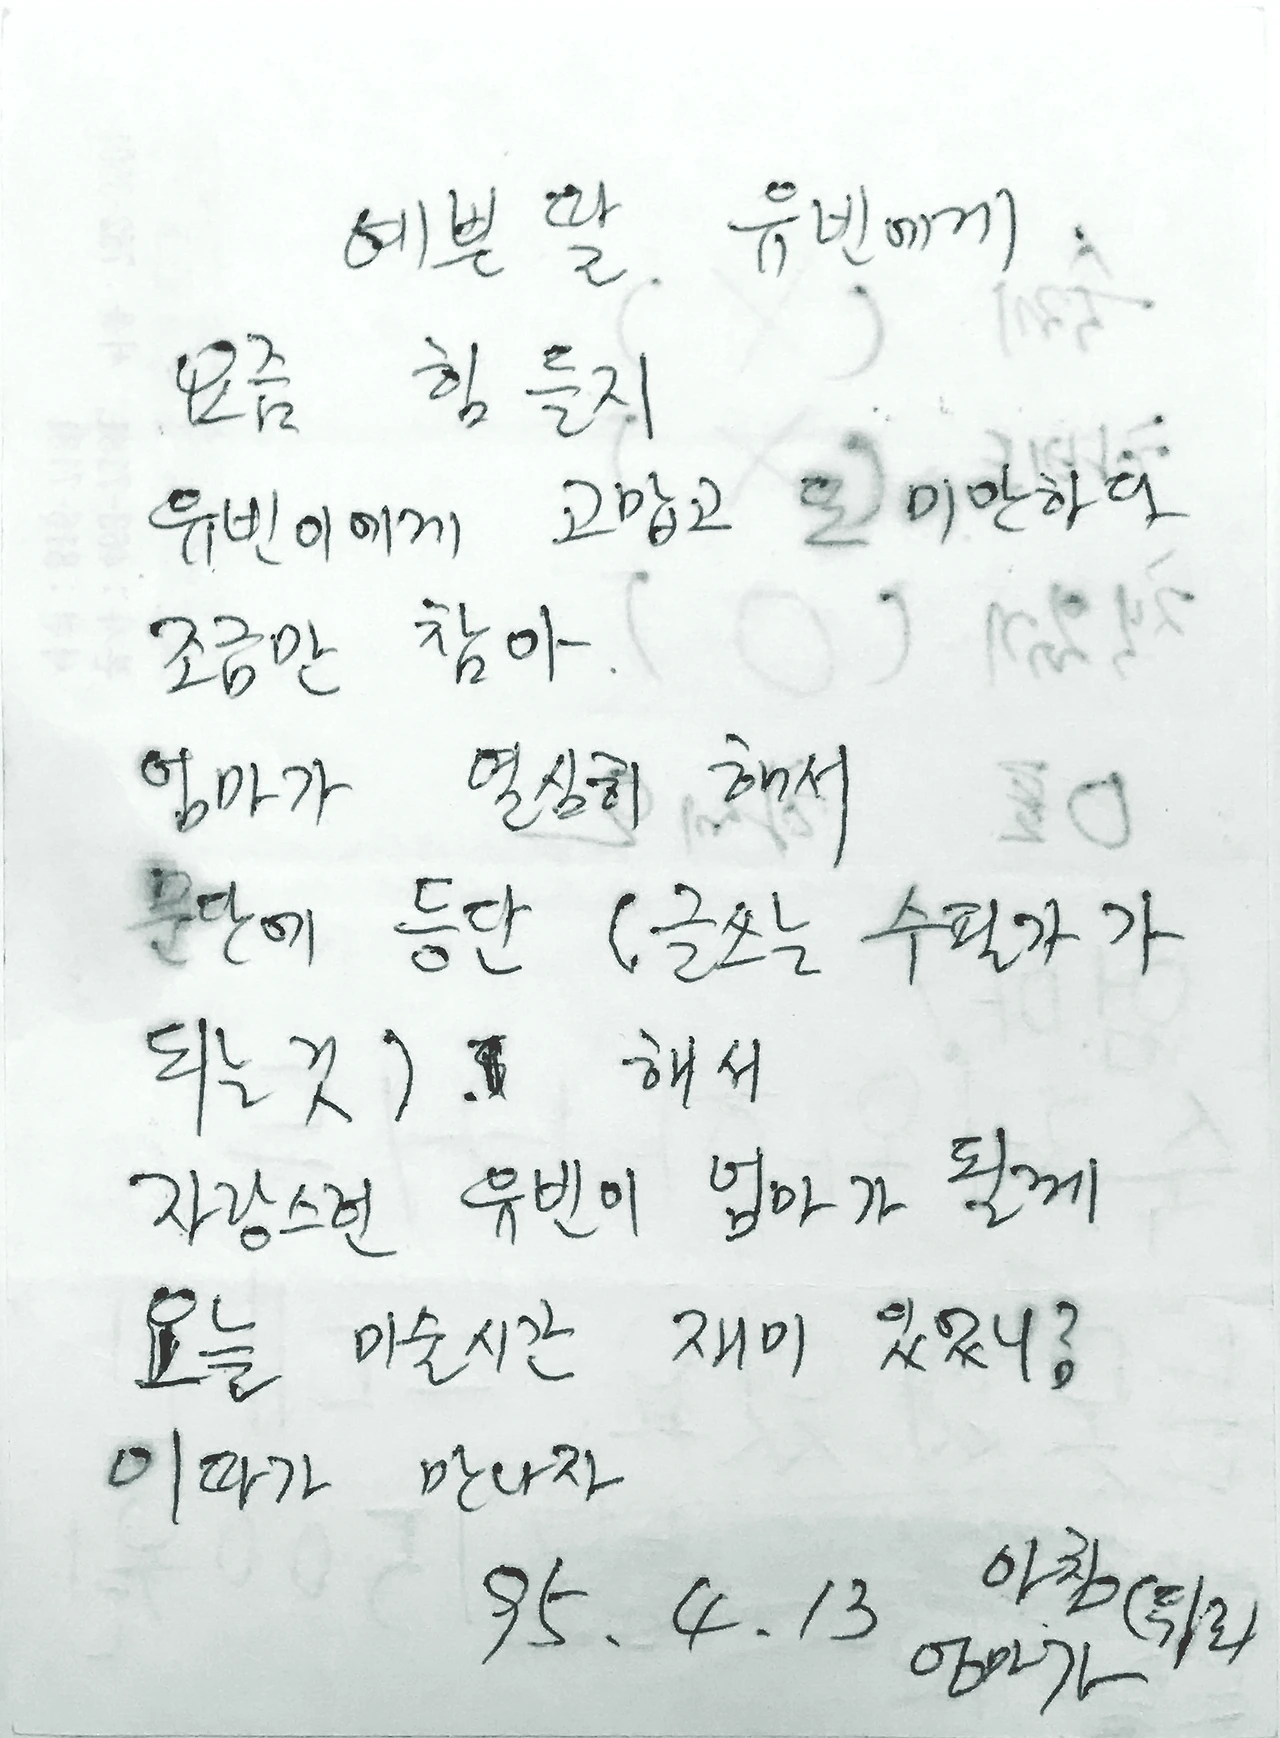 예쁜 딸. 유빈에게.
요즘 힘 들지
유빈이에게 고맙고 또 미안하다
조금만 참아.
엄마가 열심히 해서
문단에 등단 (글쓰는 수필가가
되는 것) 해서
자랑스런 유빈이 엄마가 될께
오늘 미술시간 재미 있었니?
이따가 만나자
95. 4. 13 아침
엄마가 (뒤로)